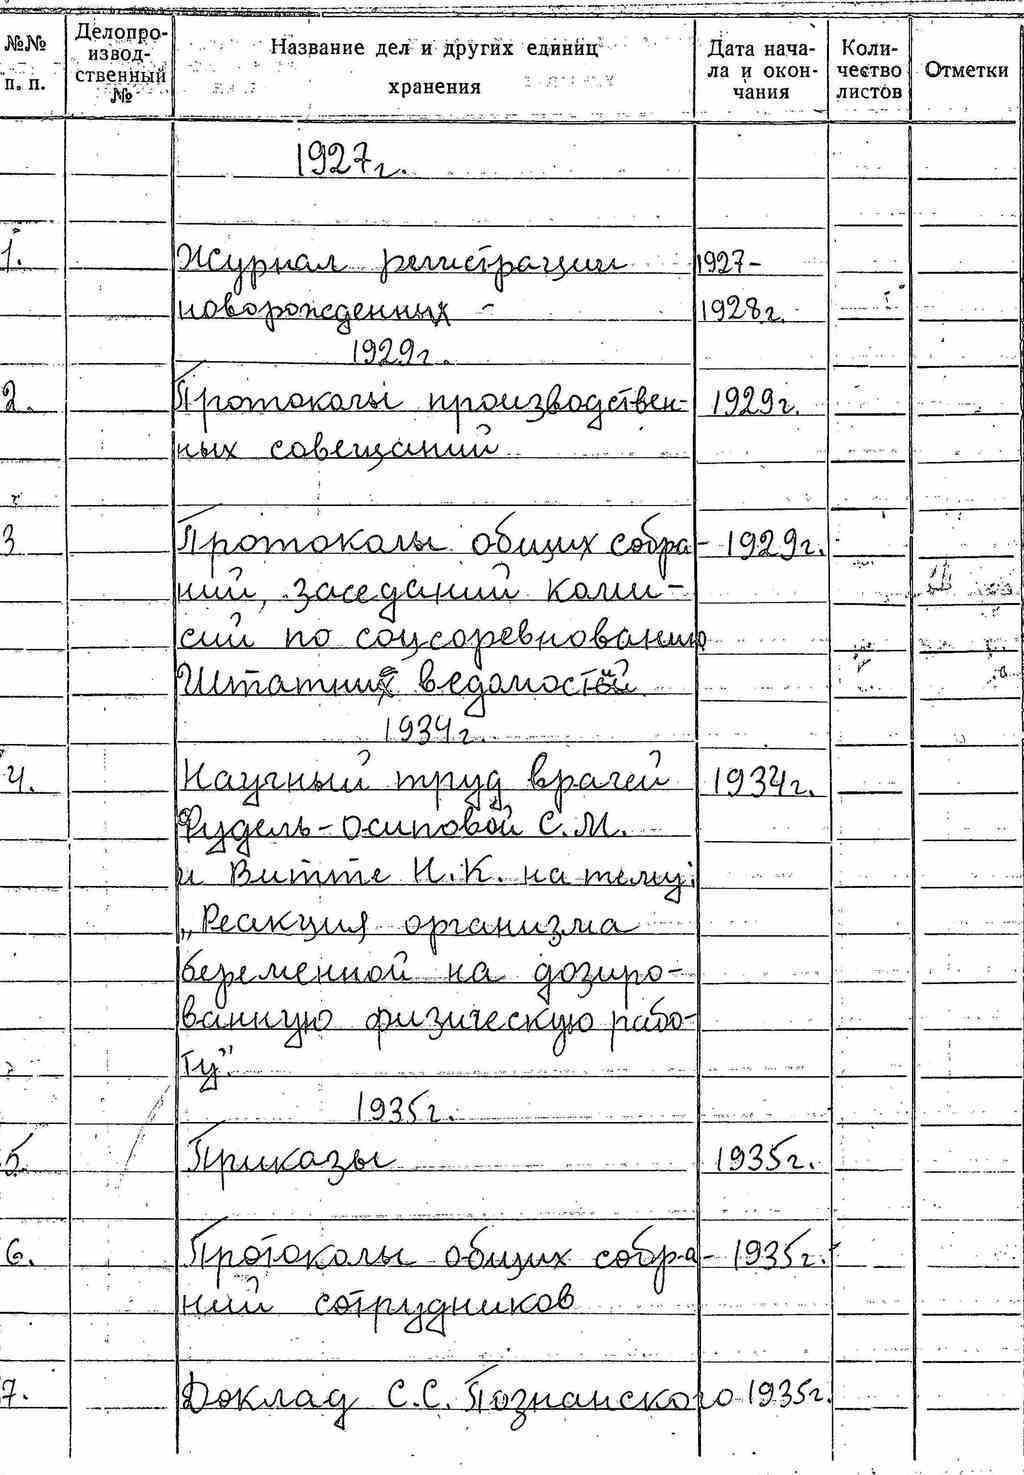 №№ п. п.
Делопроизводственный №
Название дел и других единиц хранения
Дата начала и окончания
Количество листов
Отметки
1927г.
1. Журнал регистрации 1927-
новорожденных - 1928г.
1929г.
2. Протоколы производствен- 1929г.
ных совещаний
3 Протоколы общих собра- 1929г.
ний, заседаний коми-
сий по соцсоревнованию
Штатные ведомости
1934г.
4. Научный труд врачей 1934г.
Фудель-Осиповой С.М.
и Витте Н.К. на тему:
„Реакция организма
беременной на дозиро-
ванную физическую рабо-
ту".
1935г.
5. Приказы 1935г.
6. Протоколы общих собра- 1935г.
ний сотрудников
7. Доклад С.С. Познанского 1935г.